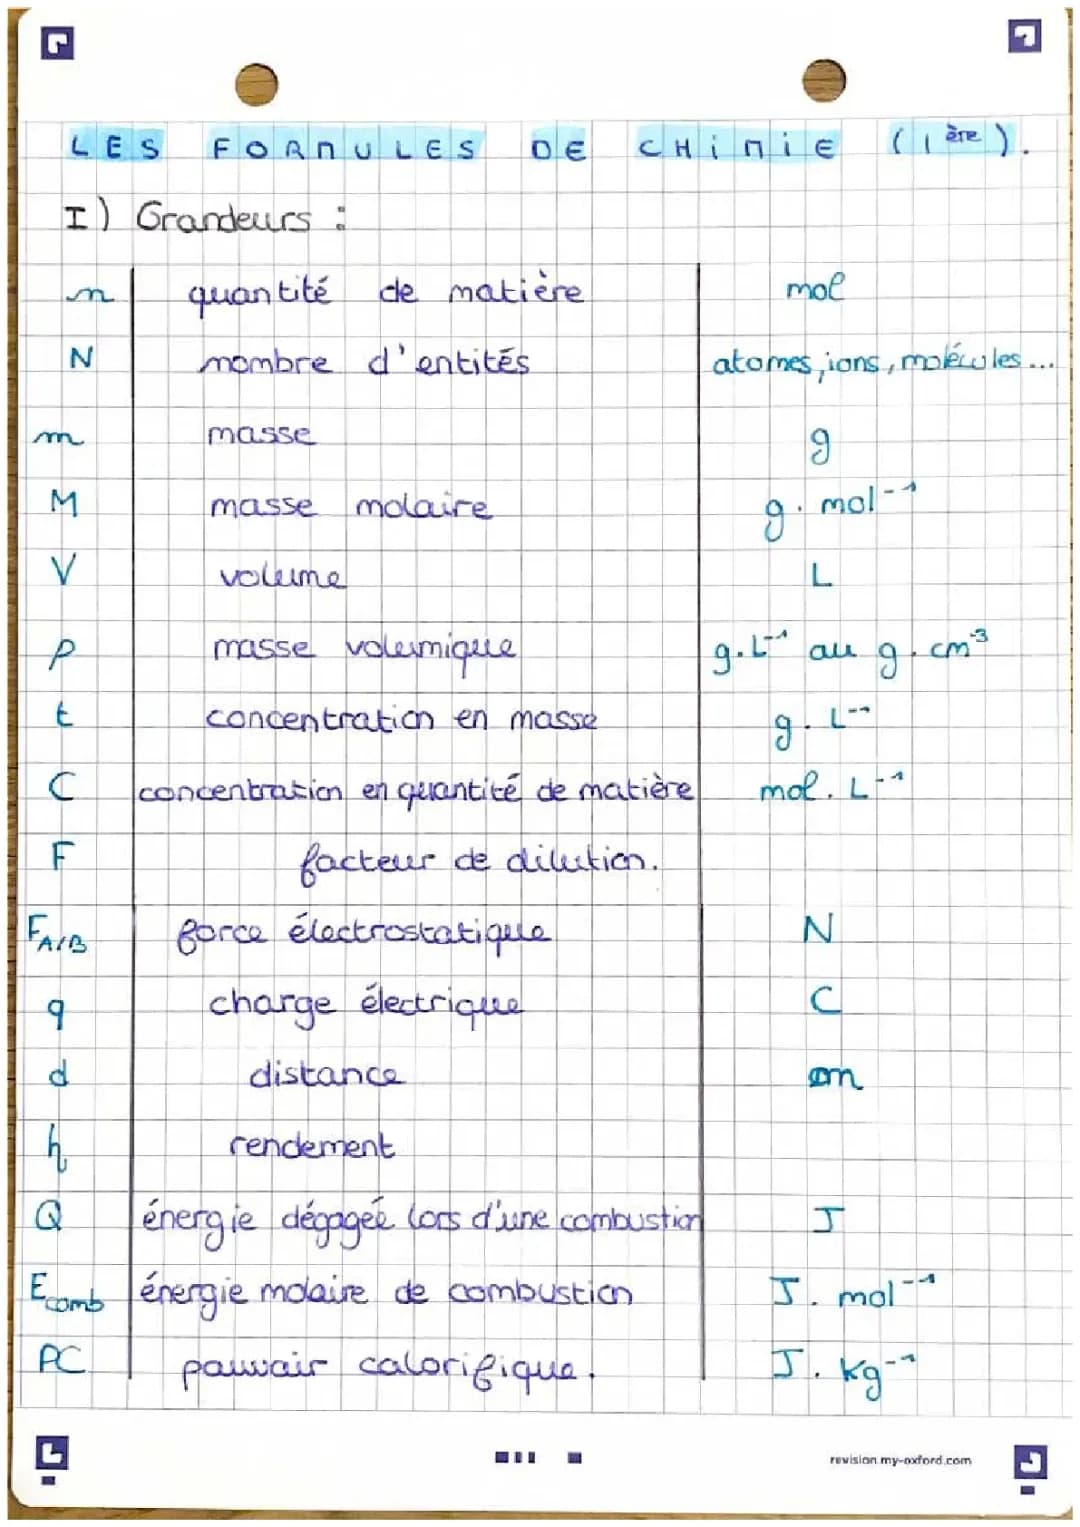 LES FORMULES DE CHIMIE (1ère).
I) Grandeurs :
n quantité de matière mol
N nombre d'entités atomes, ions, molécules...
m masse g
M masse molaire g.mol⁻¹
V volume L
ρ masse volumique g.L⁻¹ ou g.cm⁻³
t concentration en masse g.L⁻¹
C concentration en quantité de matière mol.L⁻¹
F facteur de dilution.
F_A/B force électrostatique N
q charge électrique C
d distance m
η rendement
Q énergie dégagée lors d'une combustion J
E_comb énergie molaire de combustion J.mol⁻¹
PC pouvoir calorifique. J.kg⁻¹
revision.my-oxford.com